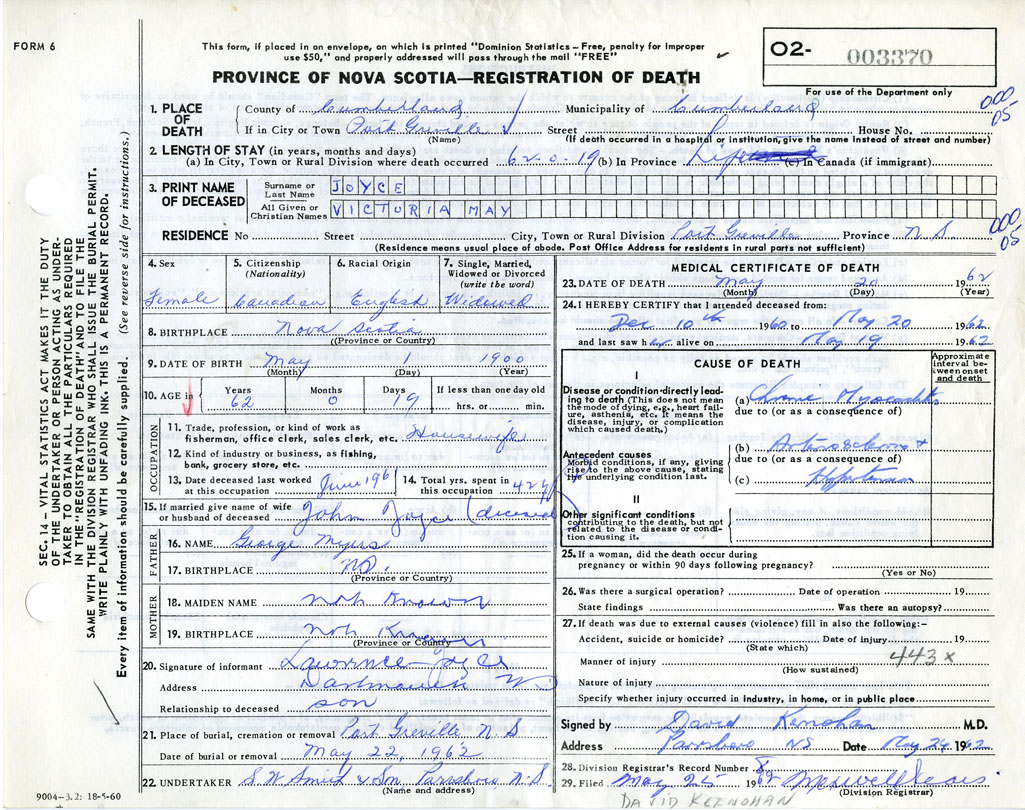 FORM 6
This form, if placed in an envelope, on which is printed "Dominion Statistics – Free, penalty for improper
use $50," and properly addressed will pass through the mail "FREE"
PROVINCE OF NOVA SCOTIA—REGISTRATION OF DEATH
O2- 003370
For use of the Department only
1. PLACE OF DEATH County of Cumberland Municipality of Cumberland 000-05
If in City or Town Port Greville Street House No.
(Name) (If death occurred in a hospital or institution, give the name instead of street and number)
2. LENGTH OF STAY (in years, months and days)
(a) In City, Town or Rural Division where death occurred 62-0-19 (b) In Province Life (c) In Canada (if immigrant)
3. PRINT NAME OF DECEASED
Surname or Last Name JOYCE
All Given or Christian Names VICTORIA MAY
RESIDENCE No Street City, Town or Rural Division Port Greville Province N S 000-05
(Residence means usual place of abode. Post Office Address for residents in rural parts not sufficient)
4. Sex Female
5. Citizenship (Nationality) Canadian
6. Racial Origin English
7. Single, Married, Widowed or Divorced (write the word) Widowed
8. BIRTHPLACE Nova Scotia
(Province or Country)
9. DATE OF BIRTH May 1 1900
(Month) (Day) (Year)
10. AGE in Years 62 Months 0 Days 19 If less than one day old hrs. or min.
OCCUPATION
11. Trade, profession, or kind of work as
fisherman, office clerk, sales clerk, etc. Housewife
12. Kind of industry or business, as fishing,
bank, grocery store, etc.
13. Date deceased last worked at this occupation June 1961 14. Total yrs. spent in this occupation 42
15. If married give name of wife or husband of deceased John Joyce (deceased)
FATHER
16. NAME George Myers
17. BIRTHPLACE
(Province or Country)
MOTHER
18. MAIDEN NAME not Known
19. BIRTHPLACE not Known
(Province or Country)
20. Signature of informant Lawrence Joyce
Address Dartmouth NS
Relationship to deceased son
21. Place of burial, cremation or removal Port Greville N S
Date of burial or removal May 22, 1962
22. UNDERTAKER S.W. Smith & Son Parrsboro N.S.
(Name and address)
9004-3.2: 18-5-60
MEDICAL CERTIFICATE OF DEATH
23. DATE OF DEATH May 20 1962
(Month) (Day) (Year)
24. I HEREBY CERTIFY that I attended deceased from:
Dec 10th 1960 to May 20 1962
and last saw her alive on May 19 1962
CAUSE OF DEATH
Approximate interval between onset and death
I
Disease or condition directly leading to death (This does not mean the mode of dying, e.g., heart failure, asthenia, etc. It means the disease, injury, or complication which caused death.)
(a) Chronic Myocarditis
due to (or as a consequence of)
Antecedent causes
Morbid conditions, if any, giving rise to the above cause, stating the underlying condition last.
(b) Arteriosclerosis +
due to (or as a consequence of)
(c) Hypertension
II
Other significant conditions
contributing to the death, but not related to the disease or condition causing it.
25. If a woman, did the death occur during
pregnancy or within 90 days following pregnancy?
(Yes or No)
26. Was there a surgical operation? Date of operation 19
State findings Was there an autopsy?
27. If death was due to external causes (violence) fill in also the following:-
Accident, suicide or homicide? Date of injury 19
(State which)
443 x
Manner of injury
(How sustained)
Nature of injury
Specify whether injury occurred in industry, in home, or in public place
Signed by David Kernohan M.D.
Address Parrsboro NS Date May 24 1962
28. Division Registrar's Record Number 8
29. Filed May 25 1962
(Division Registrar)
DAVID KERNOHAN
SEC. 14 – VITAL STATISTICS ACT MAKES IT THE DUTY
OF THE UNDERTAKER OR PERSON ACTING AS UNDER-
TAKER TO OBTAIN ALL THE PARTICULARS REQUIRED
IN THE "REGISTRATION OF DEATH" AND TO FILE THE
SAME WITH THE DIVISION REGISTRAR WHO SHALL ISSUE THE BURIAL PERMIT.
WRITE PLAINLY WITH UNFADING INK. THIS IS A PERMANENT RECORD.
Every item of information should be carefully supplied. (See reverse side for instructions.)